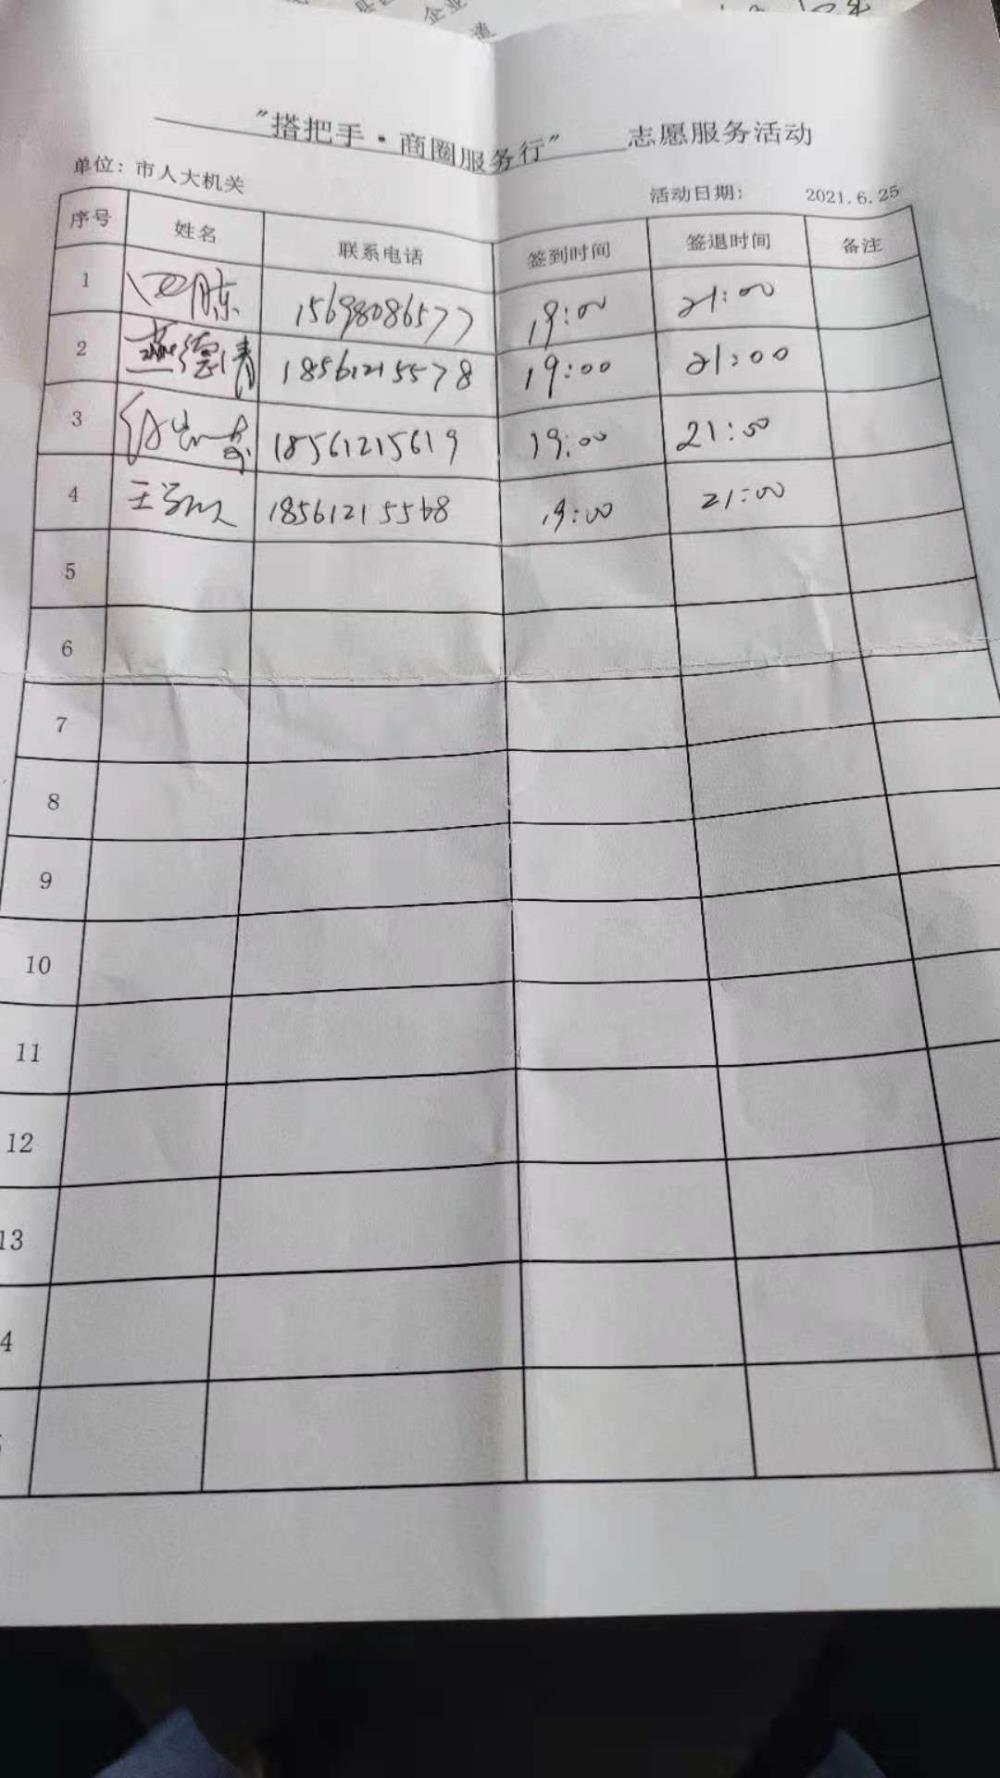 企业
"搭把手·商圈服务行" 志愿服务活动
单位：市人大机关 活动日期： 2021.6.25
序号 姓名 联系电话 签到时间 签退时间 备注
1 15698086577 19:00 21:00
2 燕德清 18561215578 19:00 21:00
3 18561215619 19:00 21:00
4 王 18561215568 19:00 21:00
5
6
7
8
9
10
11
12
13
4